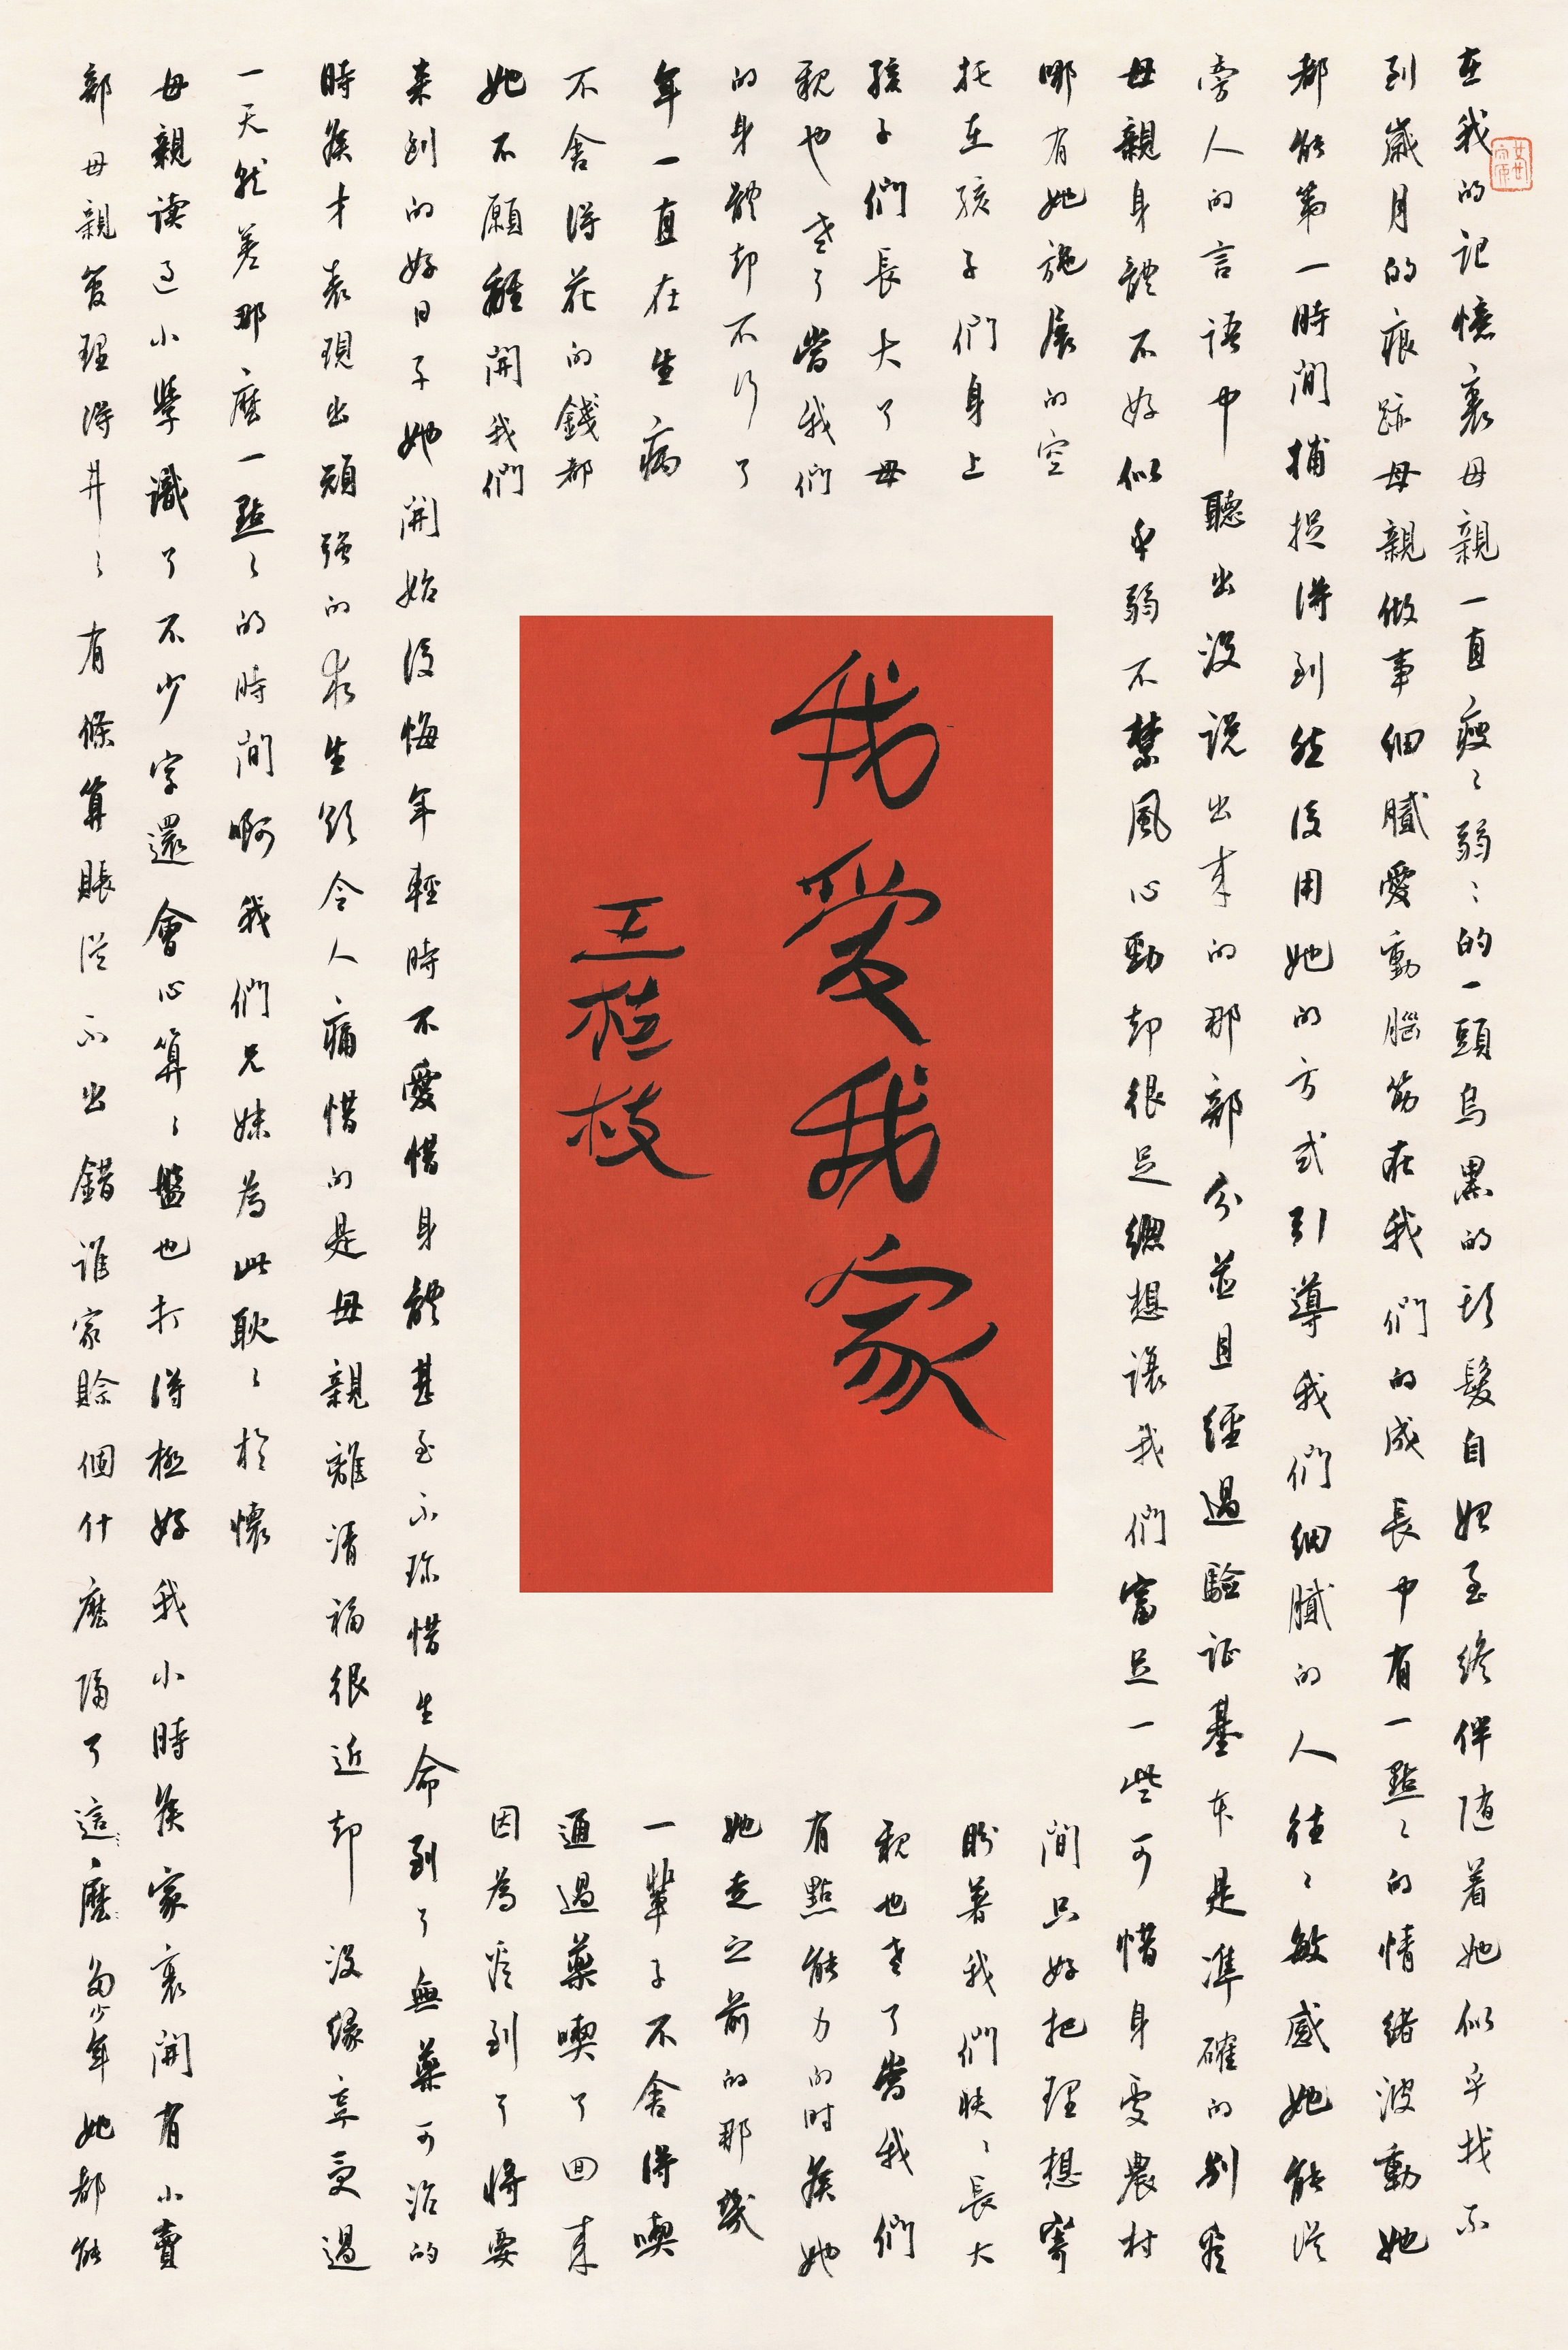 在我的記憶裏母親一直瘦々弱々的一頭烏黑的頭髮自始至終伴随着她似乎找不
到歲月的痕跡母親做事細膩愛動腦筋在我們的成長中有一點々的情緒波動她
都能第一時間捕捉得到然後用她的方式引導我們細膩的人往々敏感她能從
旁人的言語中聽出没説出来的那部分並且經過驗证基本是準確的别看
母親身體不好似乎弱不禁風心勁却很足總想讓我們富足一些可惜身處農村
哪有她施展的空
間只好把理想寄
托在孩子們身上
盼着我們快々長大
孩子們長大了母
親也老了當我們
親也老了當我們
有點能力的时候她
的身體却不行了
她走之前的那幾
年一直在生病
一輩子不舍得喫
不舍得花的錢都
通過藥喫了回来
她不願離開我們
因為意到了將要
来到的好日子她開始後悔年輕時不愛惜身體甚至不珍惜生命到了無藥可治的
時候才表現出頑强的求生欲令人痛惜的是母親離清福很近却没緣享受過
一天就差那麼一點々的時間啊我們兄妹為此耿々於懷
母親讀過小學識了不少字還會心算々盤也打得極好我小時候家裏開有小賣
部母親管理得井々有條算賬從不出錯誰家賒個什麼隔了這麼多少年她都能
我愛我家
王桂枝